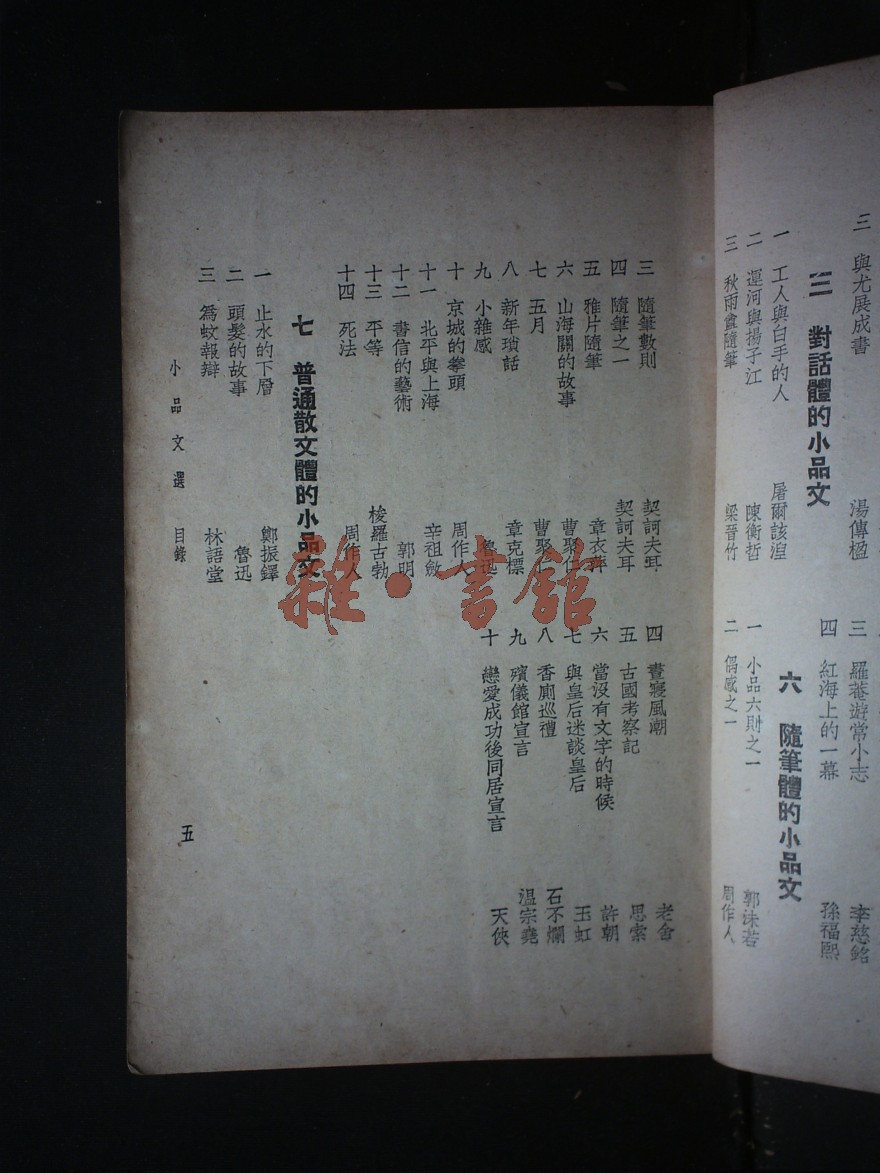 三 與尤展成書 湯傳楹
三 對話體的小品文
一 工人與白手的人 屠爾該湼
二 運河與揚子江 陳衡哲
三 秋雨盦隨筆 梁晉竹
三 羅菴遊常小志 李慈銘
四 紅海上的一幕 孫福熙
六 隨筆體的小品文
一 小品六則之一 郭沫若
二 偶感之一 周作人
三 隨筆數則 契訶夫耳
四 隨筆之一 契訶夫耳
五 雅片隨筆 章衣萍
六 山海關的故事 曹聚仁
七 五月 曹聚仁
八 新年瑣話 章克標
九 小雜感 魯迅
十 京城的拳頭 周作人
十一 北平與上海 辛祖
十二 書信的藝術 郭明
十三 平等 梭羅古勃
十四 死法 周作人
七 普通散文體的小品文
一 止水的下層 鄭振鐸
二 頭髮的故事 魯迅
三 爲蚊報辯 林語堂
四 晝寢風潮 老舍
五 古國考察記 思索
六 當沒有文字的時候 許朝
七 與皇后迷談皇后 玉虹
八 香廁巡禮 石不爛
九 殯儀館宣言 温宗堯
十 戀愛成功後同居宣言 天俠
小品文選 目錄
五
雜·書館